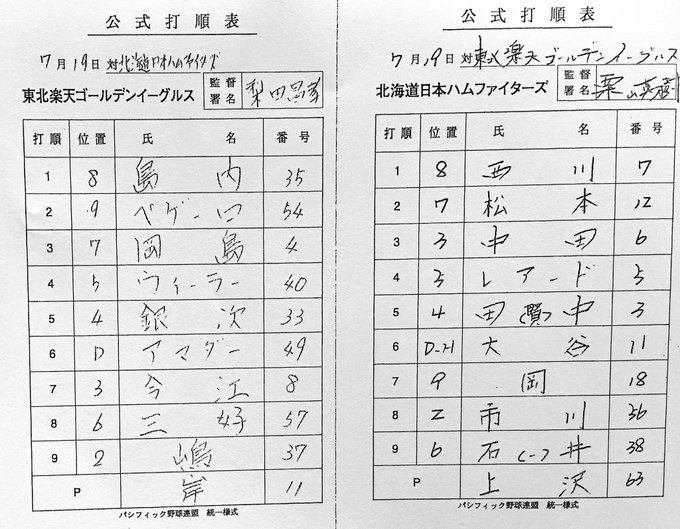 公式打順表
7月19日 対 北海道日本ハムファイターズ
東北楽天ゴールデンイーグルス 監督署名 梨田昌孝
打順 位置 氏名 番号
1 8 島内 35
2 9 ペゲーロ 54
3 7 岡島 4
4 5 ウィーラー 40
5 4 銀次 33
6 D アマダー 49
7 3 今江 8
8 6 三好 57
9 2 嶋 37
P 岸 11
パシフィック野球連盟 統一様式
公式打順表
7月19日 対 東北楽天ゴールデンイーグルス
北海道日本ハムファイターズ 監督署名 栗山英樹
打順 位置 氏名 番号
1 8 西川 7
2 7 松本 12
3 3 中田 6
4 5 レアード 5
5 4 田(賢)中 3
6 D 大谷 11
7 9 岡 18
8 2 市川 36
9 6 石(一)井 38
P 上沢 63
パシフィック野球連盟 統一様式